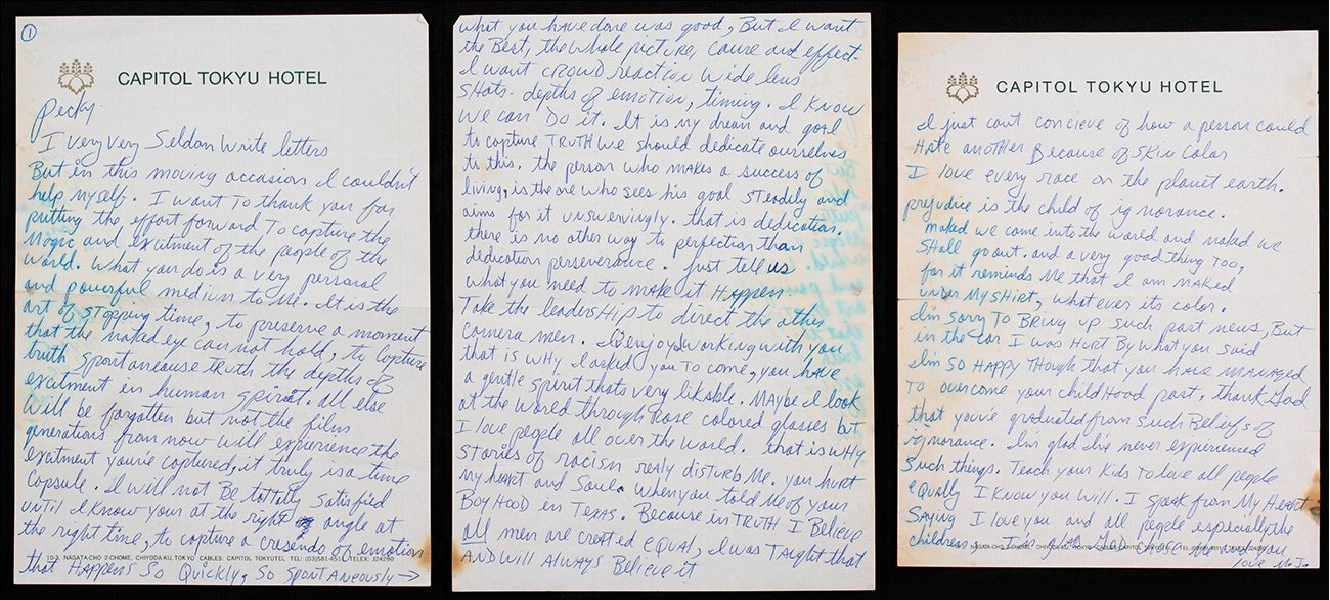 ①
CAPITOL TOKYU HOTEL
Pecky
I very very Seldon Write letters
But in this moving occasion I couldn't
help myself. I want To thank you for
putting the effort forward To capture the
Magic and excitment of the people of the
World. What you do is a very personal
and powerful medium to use. It is the
art of stopping time, to preserve a moment
that the naked eye can not hold, to capture
truth spontaneouse truth the depths of
excitment in human spirit. All else
will be forgotten but not the film
generations from now will experience the
exitment you're captured, it truly is a time
Capsule. I will not Be totally satisfied
until I know your at the right angle at
the right time, to capture a cresendo of emotion
10-3, NAGATA-CHO 2-CHOME, CHIYODA-KU, TOKYO CABLES: CAPITOL TOKYUTEL TEL (03)581-4511 TELEX: J24290
that Happens So Quickly, So Spontaneously →
what you have done was good, But I want
the Best, the whole picture, cause and effect.
I want crowd reaction wide lens
SHots- depths of emotion, timing. I Know
We can Do it. It is my dream and goal
to capture TRUTH we should dedicate ourselves
to this. the person who makes a success of
living, is the one who sees his goal STeadily and
aims for it unswervingly. that is dedication.
there is no other way to perfection than
dedication perseverance. Just tell us
what you need to make it Happen.
Take the leadership to direct the other
camera men. I enjoy working with you
that is WHy I asked you To come, you have
a gentle spirit thats very likable. Maybe I look
at the World through Rose colored glasses but
I love people all over the world. that is wHy
Stories of racism realy disturb Me. you hurt
my heart and Soul. When you told Me of your
BoyHOOD in Texas. Because in TRUTH I Believe
all men are created equal, I was TAught that
AND will Always Believe it
CAPITOL TOKYU HOTEL
I just cant concieve of how a person could
Hate anoTHer Because of SKin Color
I love every race on the planet earth.
prejudice is the child of ignorance.
naked we came into the world and naked we
SHall go out. and a very good thing Too,
for it reminds Me that I am NAKED
under My SHirt, whatever its color.
I'm sorry To Bring up such past news, But
in the car I was HurT By what you said
I'm SO HAPPY THough that you have managed
To overcome your childHood past. Thank God
that you've graduated from such Beliefs of
ignorance. I'm glad I've never experienced
Such things. Teach your Kids To love all people
equally I know you will. I speak from My HearT
SAying I love you and all people especially the
children
love M.J.